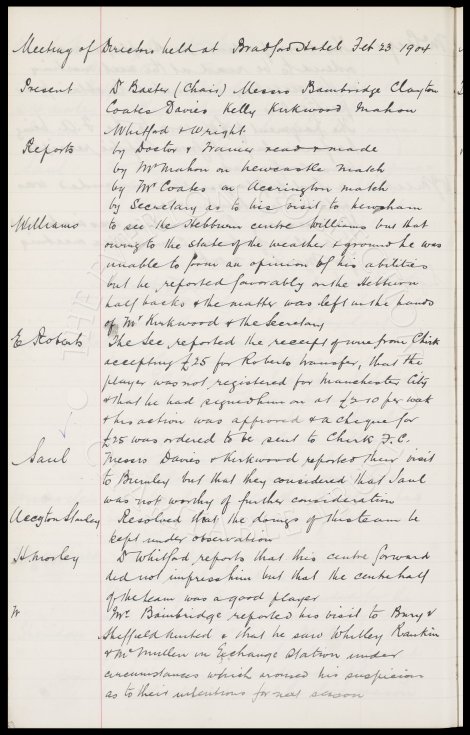 Meeting of Directors held at Bradford Hotel Feb 23 1904
Present Dr Baxter (Chair) Messrs Bainbridge Clayton
Coates Davies Kelly Kirkwood Mahon
Whitford & Wright
Reports by Doctor & Trainer read & made
by Mr Mahon on Newcastle match
by Mr Coates on Accrington match
by Secretary as to his visit to Newsham
Williams to see the Hebburn centre Williams but that
owing to the state of the weather & ground he was
unable to form an opinion of his abilities
but he reported favorably on the Hebburn
half backs & the matter was left in the hands
of Mr Kirkwood & the Secretary
E Roberts The Sec reported the receipt of wire from Chirk
accepting £25 for Roberts transfer, that the
player was not registered for Manchester City
& that he had signed him on at £2-10 per week
& his action was approved & a cheque for
£25 was ordered to be sent to Chirk F.C.
Saul Messrs Davies & Kirkwood reported their visit
to Burnley but that they considered that Saul
was not worthy of further consideration
Accrington Stanley Resolved that the doings of this team be
kept under observation
H Morley Dr Whitford reports that this centre forward
did not impress him but that the centre half
of the team was a good player
W Mr Bainbridge reported his visit to Bury v
Sheffield United & that he saw Whitley Rankin
& McMullen in Exchange Station under
circumstances which aroused his suspicion
as to their intentions for next season